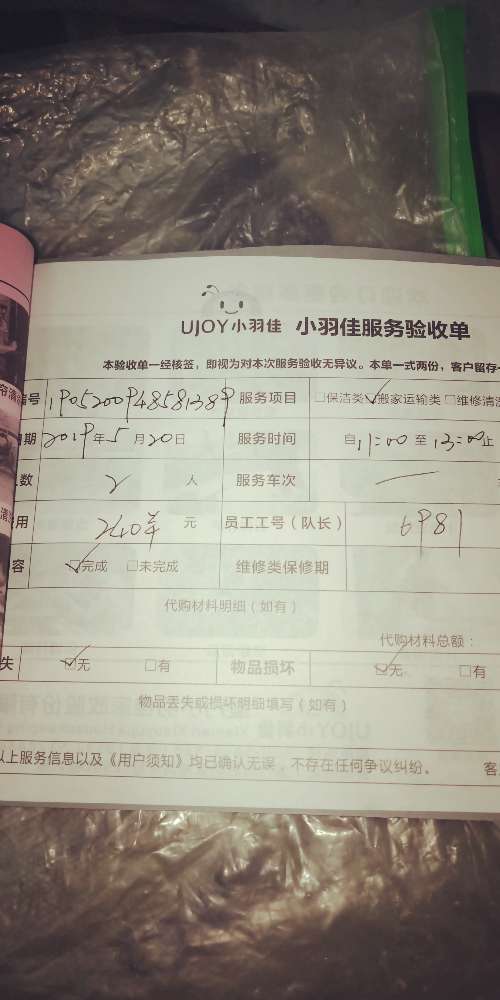 UJOY小羽佳 小羽佳服务验收单
本验收单一经核签，即视为对本次服务验收无异议。本单一式两份，客户留存一
编号 1905200948581389 服务项目 □保洁类 ☑搬家运输类 □维修清洗
日期 2019年5月20日 服务时间 自11:00至13:00止
人数 2 人 服务车次 —
用 240 元 员工工号（队长） 6981
容 ☑完成 □未完成 维修类保修期
代购材料明细（如有）
代购材料总额：
失 ☑无 □有 物品损坏 ☑无 □有
物品丢失或损坏明细填写（如有）
以上服务信息以及《用户须知》均已确认无误，不存在任何争议纠纷。 客